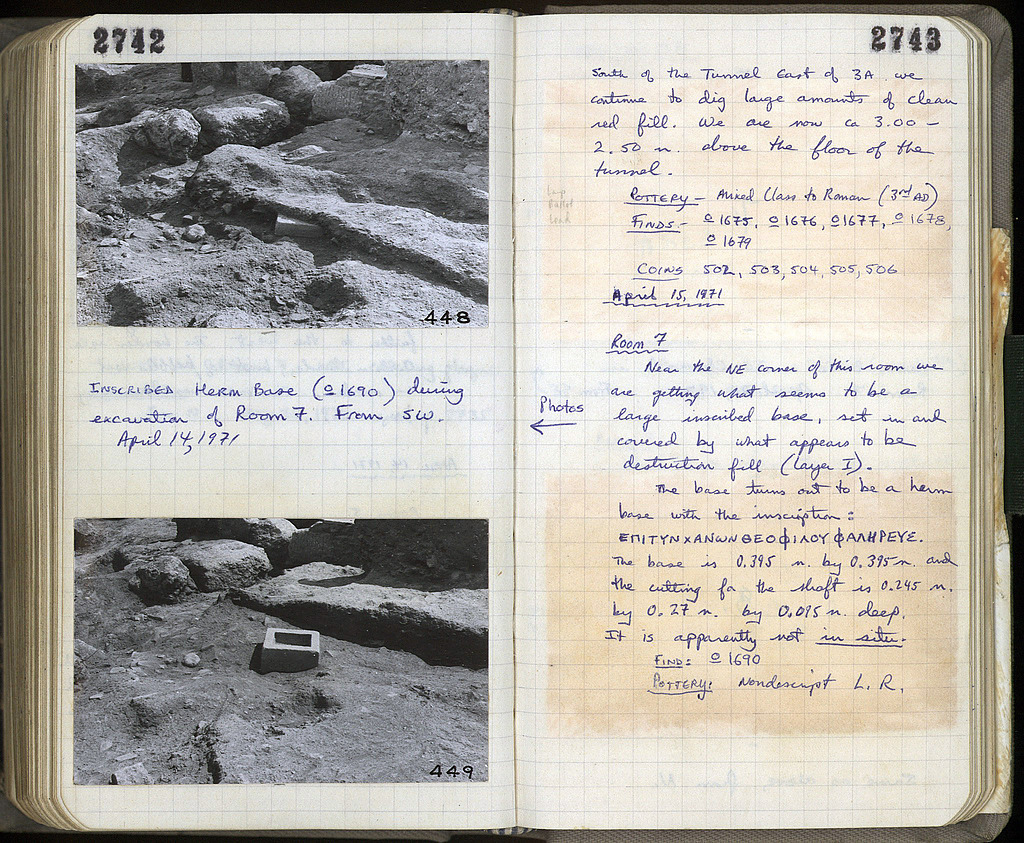 2742
448
INSCRIBED HERM BASE (o 1690) during
excavation of Room 7. From SW.
April 14, 1971
449
2743
South of the Tunnel East of 3A we
continue to dig large amounts of clean
red fill. We are now ca 3.00 –
2.50 m. above the floor of the
tunnel.
POTTERY – Mixed Class to Roman (3rd AD)
FINDS – o 1675, o 1676, o 1677, o 1678,
o 1679
COINS 502, 503, 504, 505, 506
April 15, 1971
Room 7
Near the NE corner of this room we
are getting what seems to be a
large inscribed base, set in and
covered by what appears to be
destruction fill (layer I).
Photos
The base turns out to be a herm
base with the inscription:
ΕΠΙΤΥΝΧΑΝΩΝΘΕΟΦΙΛΟΥΦΑΛΗΡΕΥΣ.
The base is 0.395 m. by 0.395 m. and
the cutting for the shaft is 0.245 m.
by 0.27 m. by 0.095 m. deep.
It is apparently not in situ.
FIND: o 1690
POTTERY: Nondescript L.R.